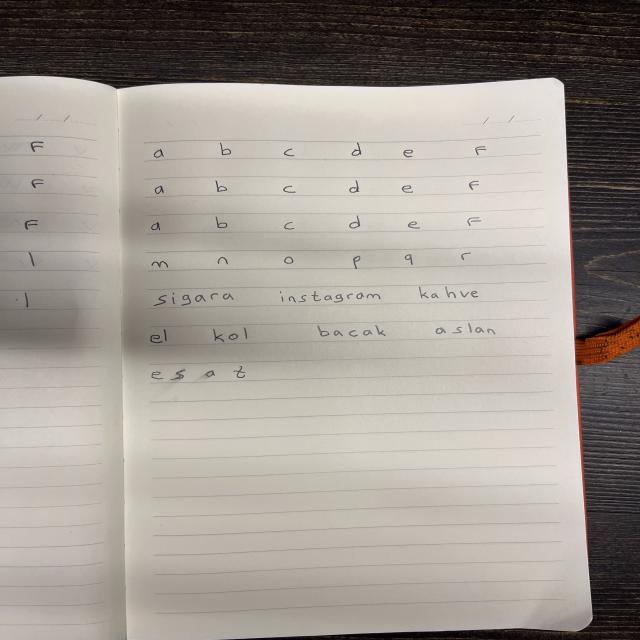 F
F
F
l
l
a b c d e F
a b c d e F
a b c d e F
m n o p q r
sigara instagram kahve
el kol bacak aslan
e s a t